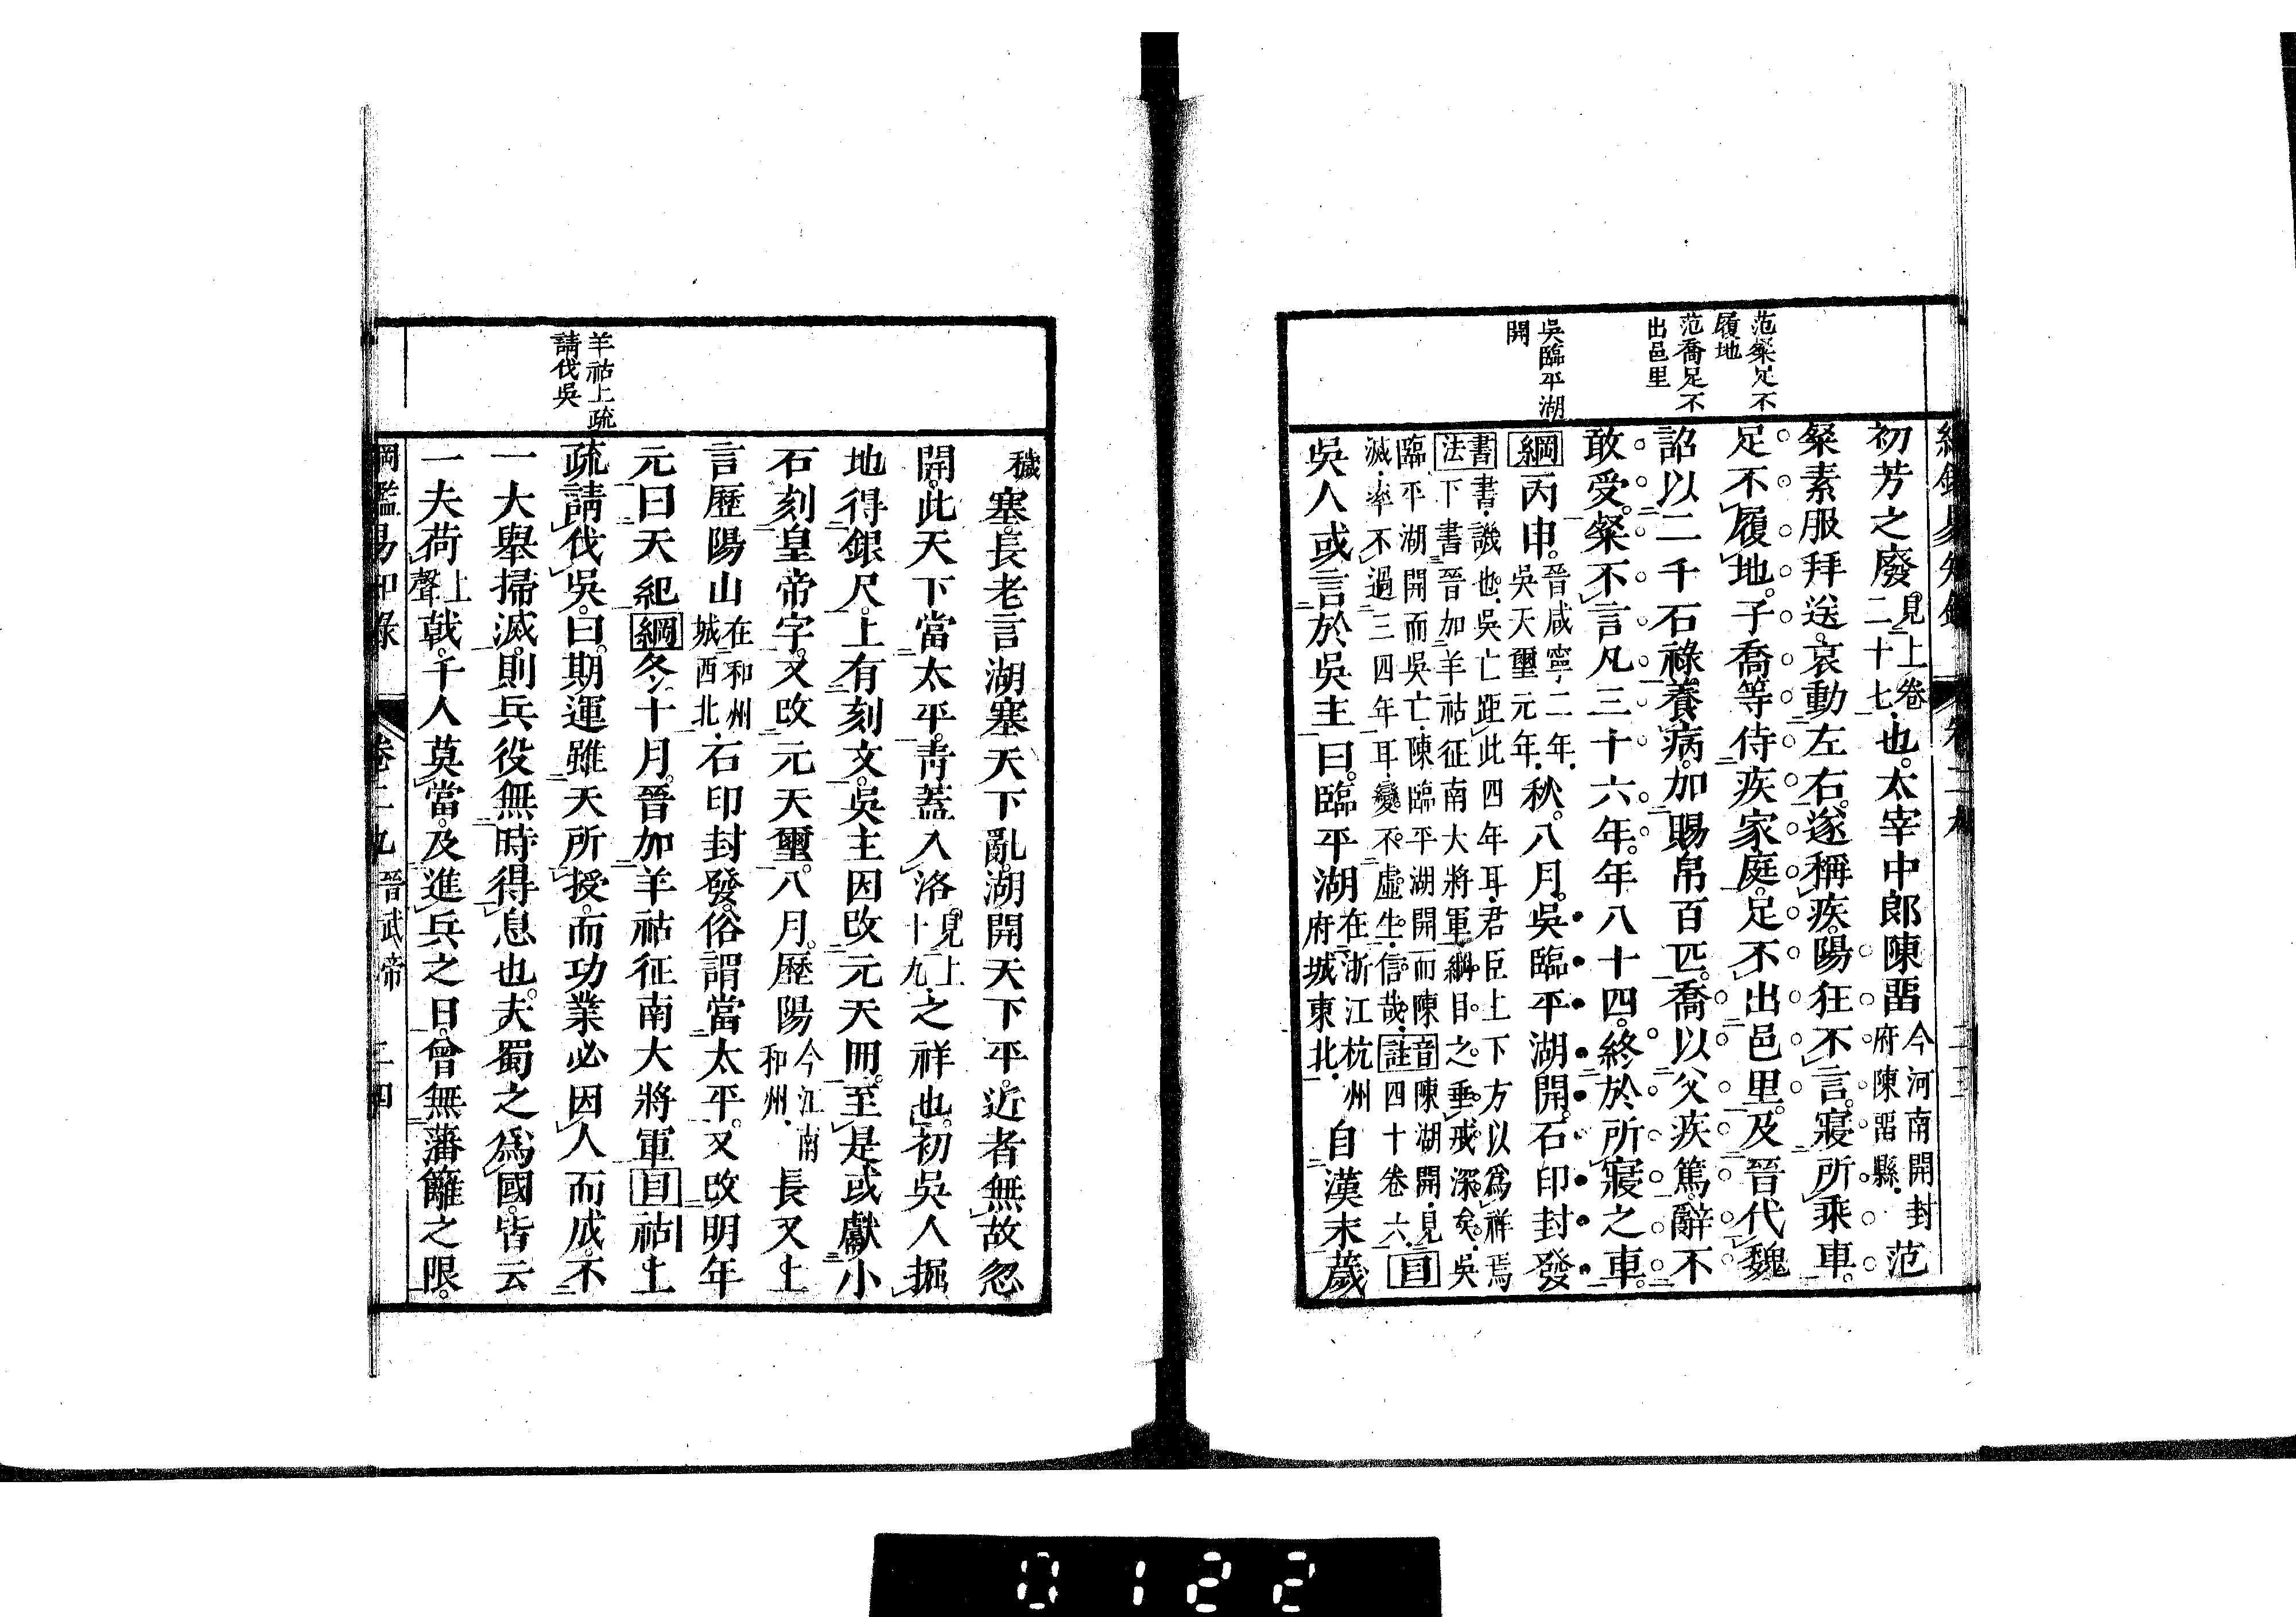 范粲足不
履地
范喬足不
出邑里
吳臨平湖
開
初芳之廢見上卷二十七也太宰中郎陳畱今河南開封府陳畱縣范
粲素服拜送哀動左右遂稱疾陽狂不言寢所乘車
足不履地子喬等侍疾家庭足不出邑里及晉代魏
詔以二千石祿養病加賜帛百匹喬以父疾篤辭不
敢受粲不言凡三十六年年八十四終於所寢之車
綱丙申晉咸寧二年吳天璽元年秋八月吳臨平湖開石印封發
書法書譏也吳亡距此四年耳君臣上下方以爲祥焉
下書晉加羊祜征南大將軍綱目之垂戒深矣吳
臨平湖開而吳亡陳臨平湖開而陳
滅率不過三四年耳變不虛生信哉音註陳湖開見四十卷六目
吳人或言於吳主曰臨平湖在浙江杭州府城東北自漢末薉
穢塞長老言湖塞天下亂湖開天下平近者無故忽
開此天下當太平靑蓋入洛見上十九之祥也初吳人掘
地得銀尺上有刻文吳主因改元天冊至是或獻小
石刻皇帝字又改元天璽八月歷陽今江南和州長又上
言歷陽山在和州城西北石印封發俗謂當太平又改明年
元曰天紀綱冬十月晉加羊祜征南大將軍目祜上
疏請伐吳曰期運雖天所授而功業必因人而成不
一大舉掃滅則兵役無時得息也夫蜀之爲國皆云
一夫荷上聲戟千人莫當及進兵之日曾無藩籬之限
羊祜上疏
請伐吳
綱鑑易知錄 卷二九 晉武帝 二四
0122